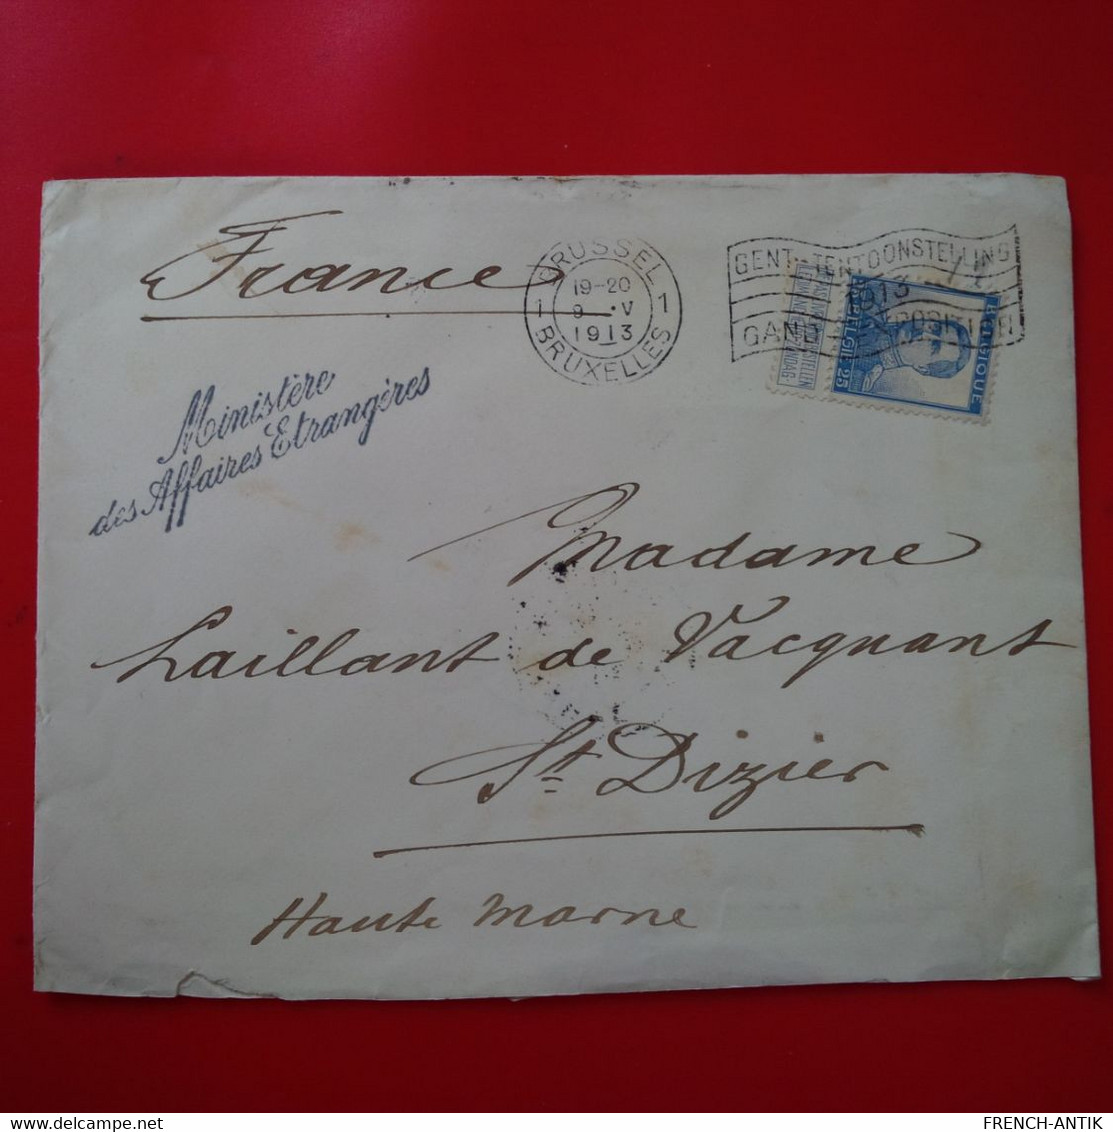 France
BRUSSEL
1 19-20 1
9 · V
1913
BRUXELLES
GENT-TENTOONSTELLING
1913
GAND
BELGIQUE
BELGIE 25
Ministère
des Affaires Etrangères
Madame
Laillant de Vacquant
St Dizier
Haute Marne
FRENCH-ANTIK